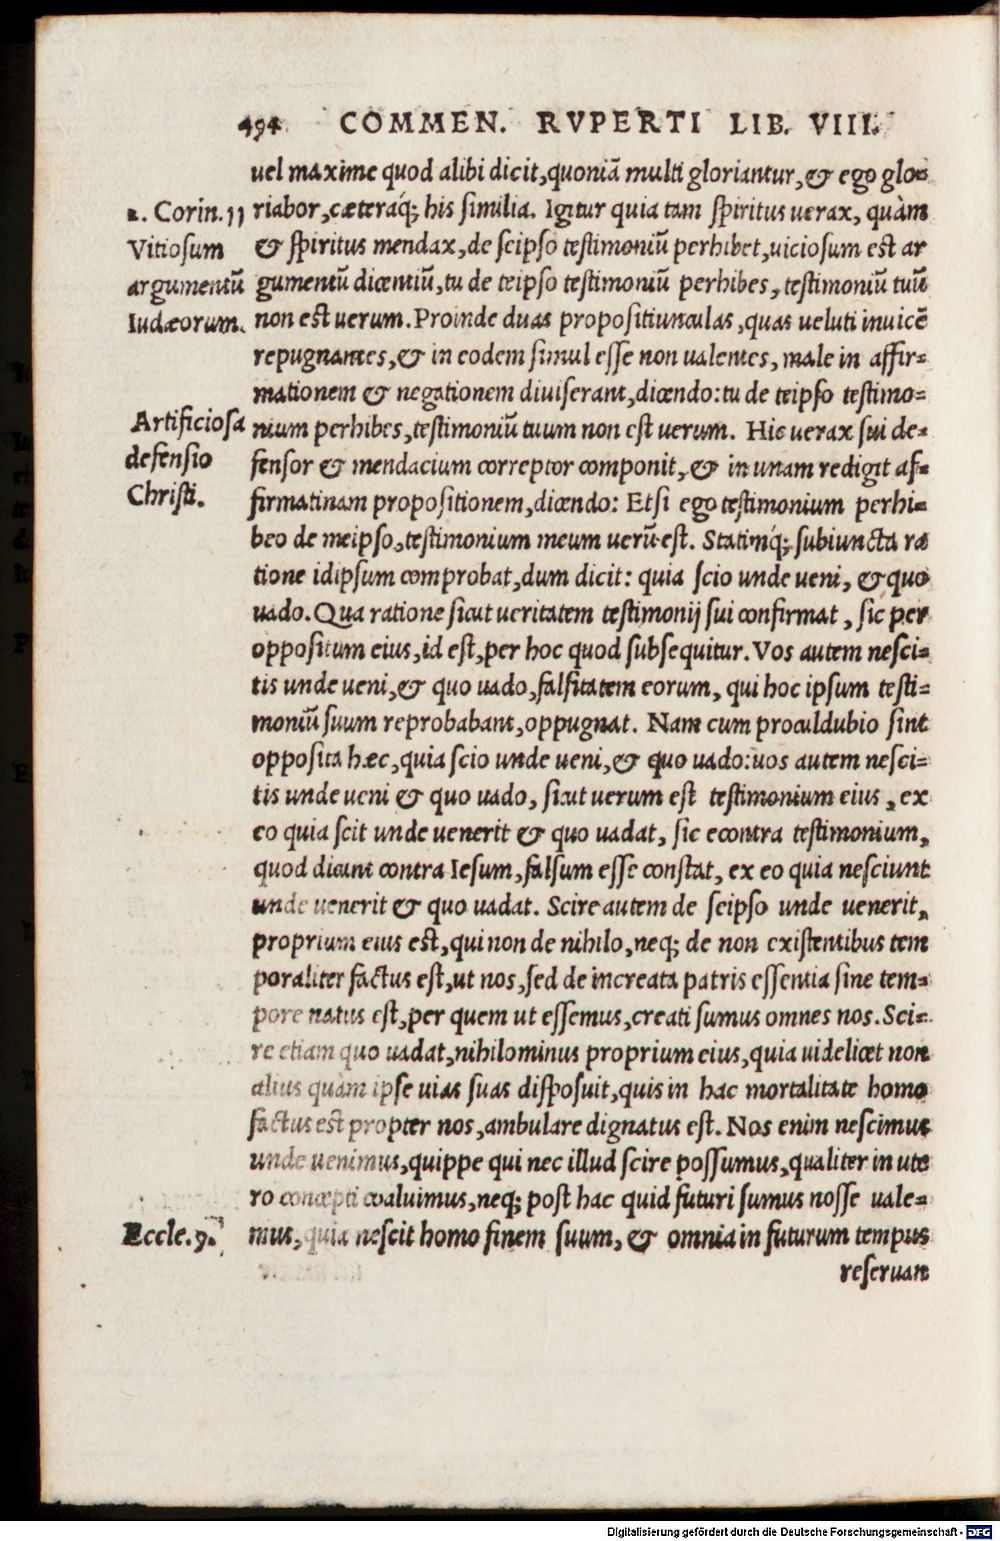 494 COMMEN. RVPERTI LIB. VIII.
uel maxime quod alibi dicit, quoniā multi gloriantur, & ego glo=
2. Corin. 11
riabor, cæteráq; his similia. Igitur quia tam spiritus uerax, quàm
Vitiosum
& spiritus mendax, de seipso testimoniū perhibet, uiciosum est ar
argumentū
gumentū dicentiū, tu de teipso testimoniū perhibes, testimoniū tuū
Iudæorum.
non est uerum. Proinde duas propositiunculas, quas ueluti inuicē
repugnantes, & in eodem simul esse non ualentes, male in affir=
mationem & negationem diuiserant, dicendo: tu de teipso testimo=
Artificiosa
nium perhibes, testimoniū tuum non est uerum. Hic uerax sui de=
defensio
fensor & mendacium correptor componit, & in unam redigit af=
Christi.
firmatinam propositionem, dicendo: Etsi ego testimonium perhi=
beo de meipso, testimonium meum uerū est. Statimq́; subiuncta ra
tione idipsum comprobat, dum dicit: quia scio unde ueni, & quo
uado. Qua ratione sicut ueritatem testimonij sui confirmat, sic per
oppositum eius, id est, per hoc quod subsequitur. Vos autem nesci=
tis unde ueni, & quo uado, falsitatem eorum, qui hoc ipsum testi=
moniū suum reprobabant, oppugnat. Nam cum proculdubio sint
opposita hæc, quia scio unde ueni, & quo uado: uos autem nesci=
tis unde ueni & quo uado, sicut uerum est testimonium eius, ex
eo quia scit unde uenerit & quo uadat, sic econtra testimonium,
quod dicunt contra Iesum, falsum esse constat, ex eo quia nesciunt
unde uenerit & quo uadat. Scire autem de seipso unde uenerit,
proprium eius est, qui non de nihilo, neq; de non existentibus tem
poraliter factus est, ut nos, sed de increata patris essentia sine tem=
pore natus est, per quem ut essemus, creati sumus omnes nos. Sci=
re etiam quo uadat, nihilominus proprium eius, quia uidelicet non
alius quàm ipse uias suas disposuit, quis in hac mortalitate homo
factus est propter nos, ambulare dignatus est. Nos enim nescimus
unde uenimus, quippe qui nec illud scire possumus, qualiter in ute
ro concepti coaluimus, neq; post hac quid futuri sumus nosse uale=
Eccle. 9.
mus, quia nescit homo finem suum, & omnia in futurum tempus
reseruan
Digitalisierung gefördert durch die Deutsche Forschungsgemeinschaft - DFG